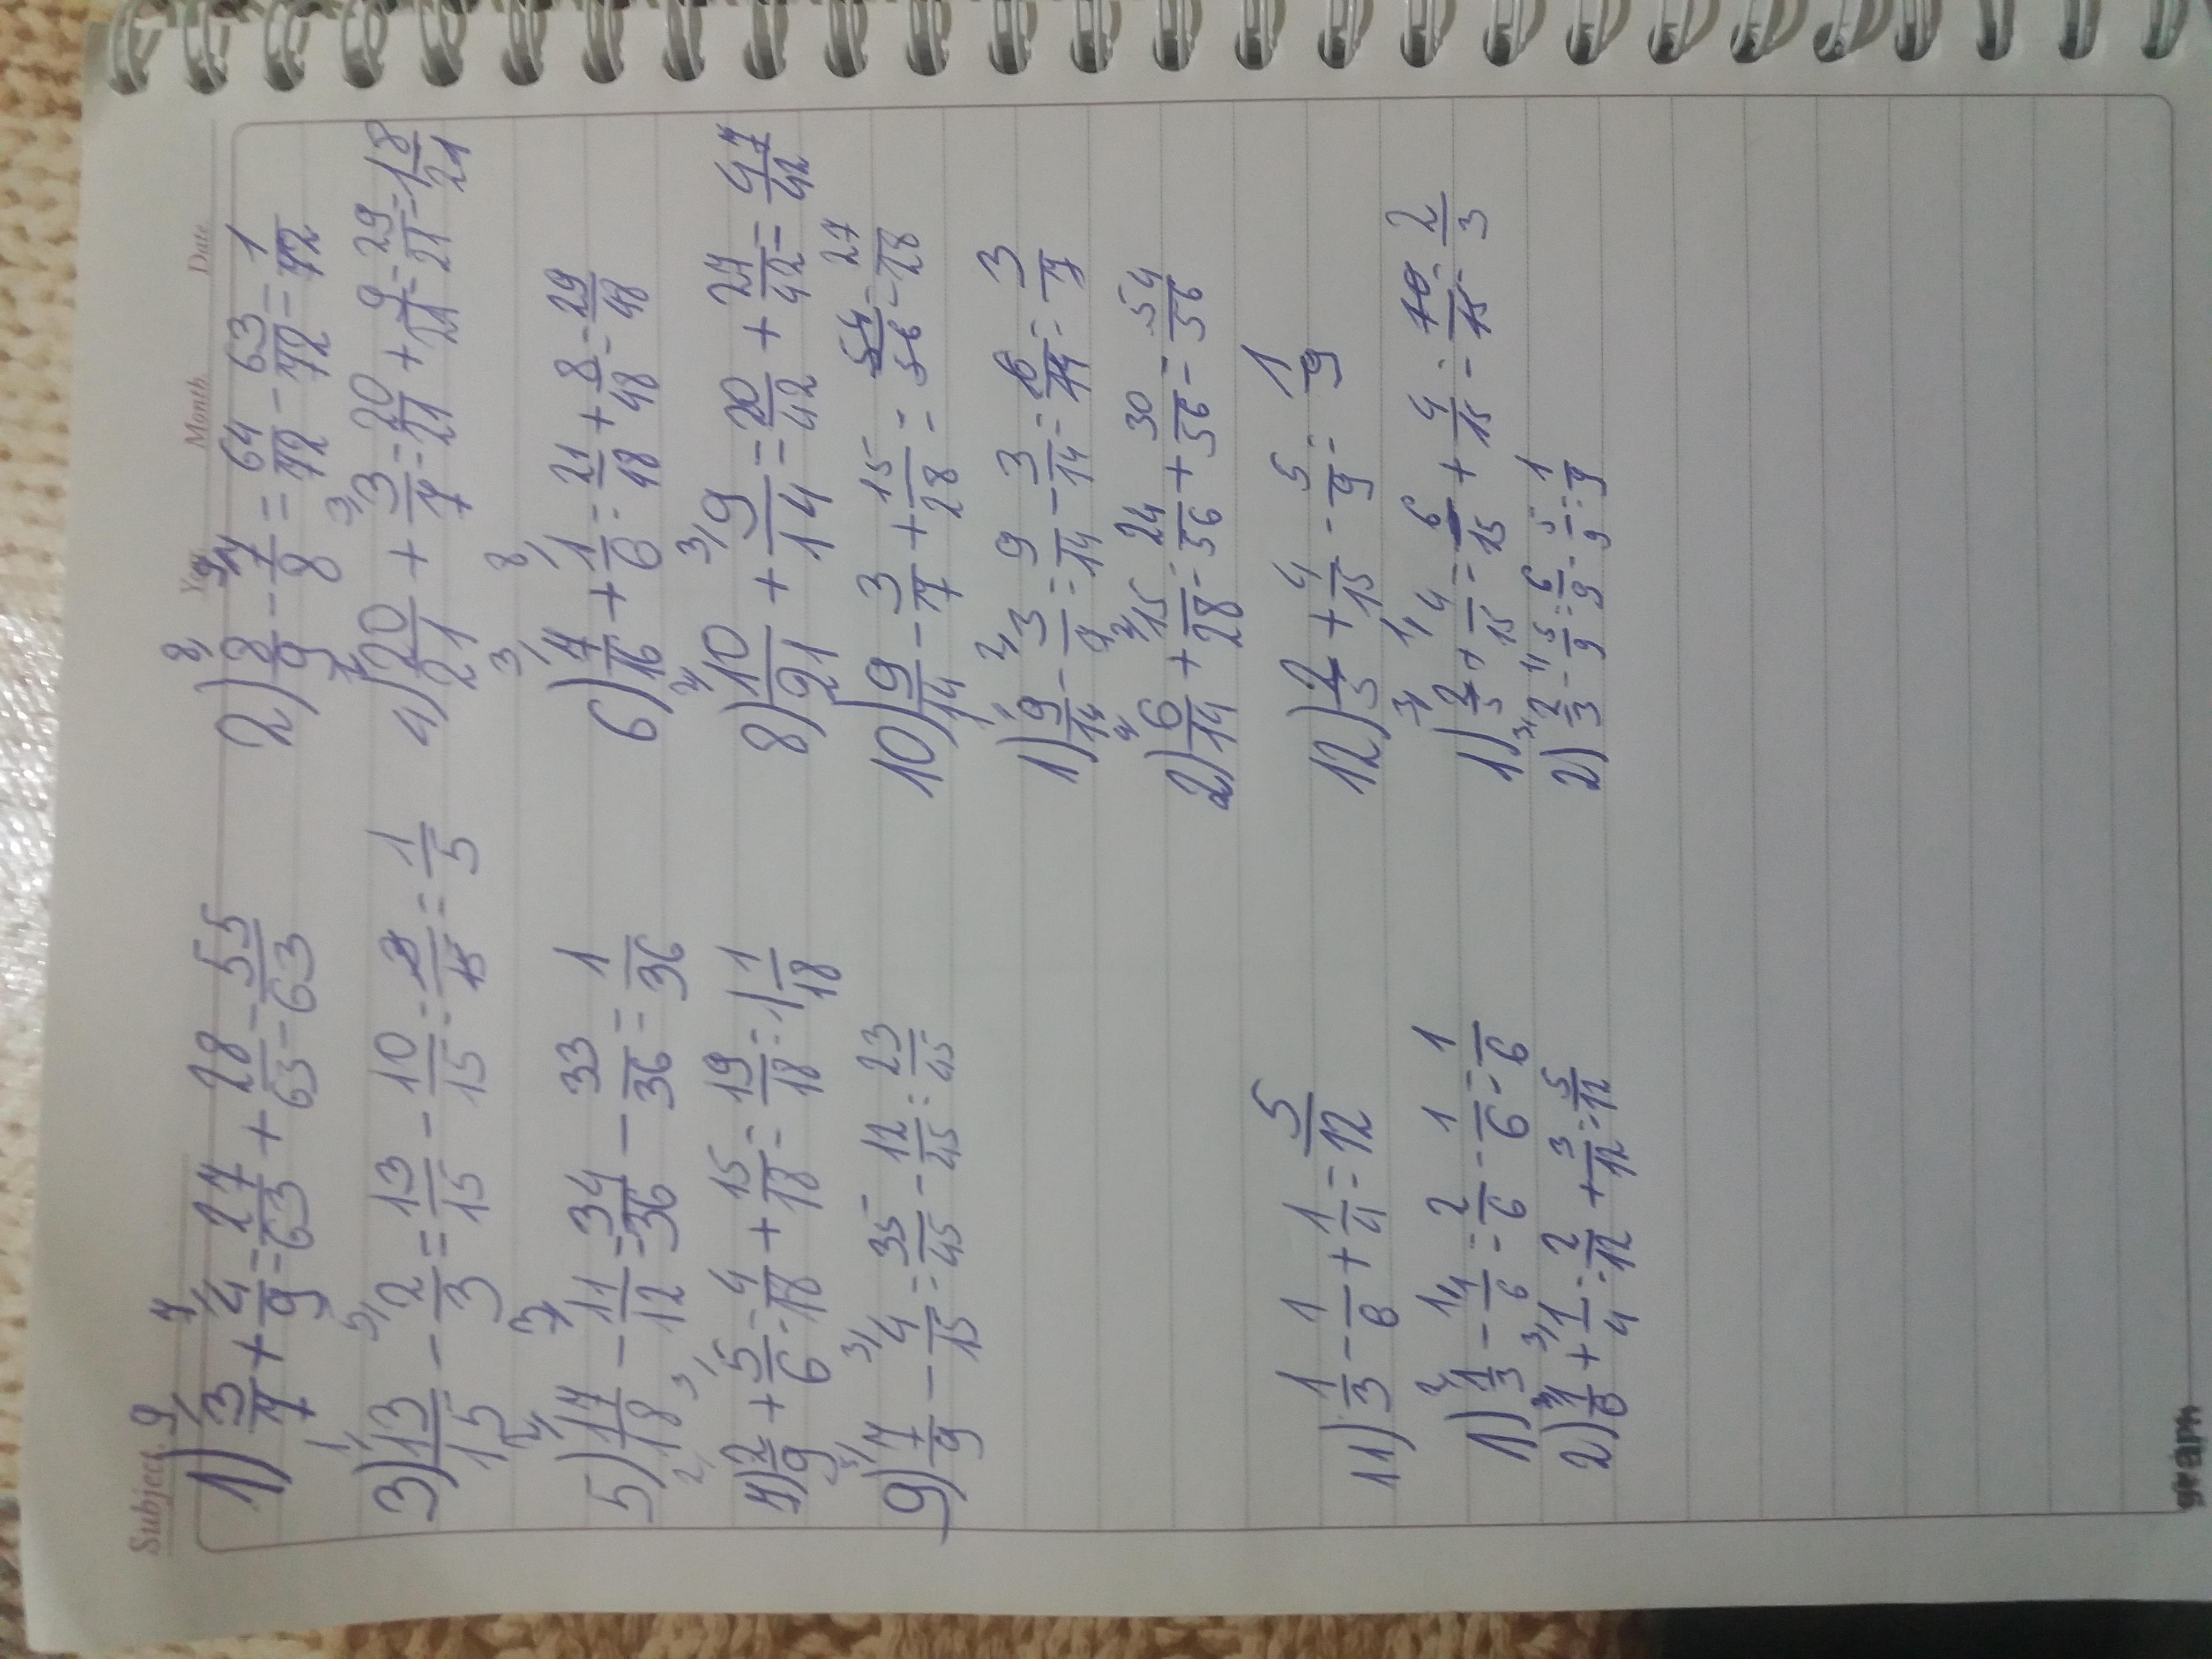 Subject. Year Month Date
1) 3/7 + 4/9 = 27/63 + 28/63 = 55/63
2) 8/9 - 7/8 = 64/72 - 63/72 = 1/72
3) 13/15 - 2/3 = 13/15 - 10/15 = 3/15 = 1/5
4) 20/21 + 3/7 = 20/21 + 9/21 = 29/21 = 1 8/21
5) 17/18 - 11/12 = 34/36 - 33/36 = 1/36
6) 7/16 + 1/6 = 21/48 + 8/48 = 29/48
7) 2/9 + 5/6 = 4/18 + 15/18 = 19/18 = 1 1/18
8) 10/21 + 9/14 = 20/42 + 27/42 = 47/42
9) 7/9 - 4/15 = 35/45 - 12/45 = 23/45
10) 9/14 - 3/7 + 15/28 = 54/56 = 27/28
1) 9/14 - 3/7 = 9/14 - 3/14 = 6/14 = 3/7
2) 6/14 + 15/28 = 24/56 + 30/56 = 54/56
11) 1/3 - 1/6 + 1/4 = 5/12
1) 1/3 - 1/6 = 2/6 - 1/6 = 1/6
2) 1/6 + 1/4 = 2/12 + 3/12 = 5/12
12) 2/5 + 4/15 - 5/9 = 1/9
1) 2/5 + 4/15 = 6/15 + 4/15 = 10/15 = 2/3
2) 2/3 - 5/9 = 6/9 - 5/9 = 1/9
graph